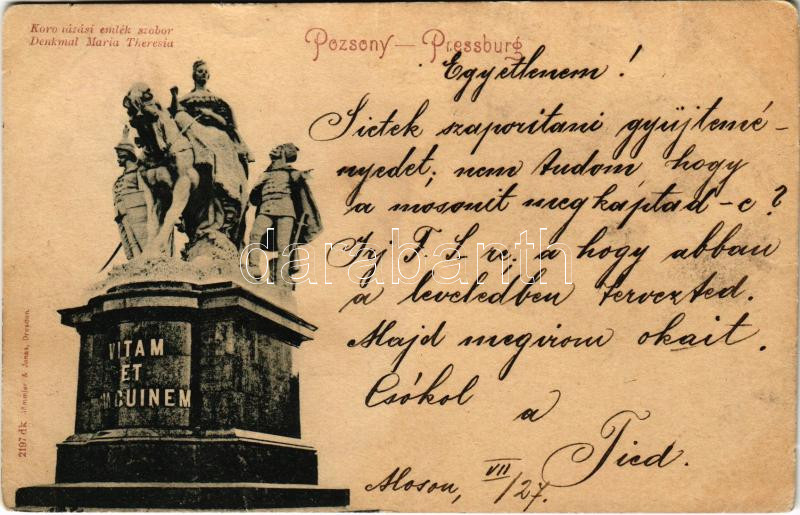 Koronázási emlék szobor
Denkmal Maria Theresia
Pozsony — Pressburg
Egyetlenem!
Sietek szaporitani gyüjtemé-
nyedet; nem tudom hogy
a mosonit megkaptad-e?
Irj F. L re, a hogy abban
a leveledben tervezted.
Majd megirom okait.
Csókol a
Tied.
Moson, VII/27.
VITAM
ET
SANGUINEM
2197 dk Römmler & Jonas, Dresden.
darabanth